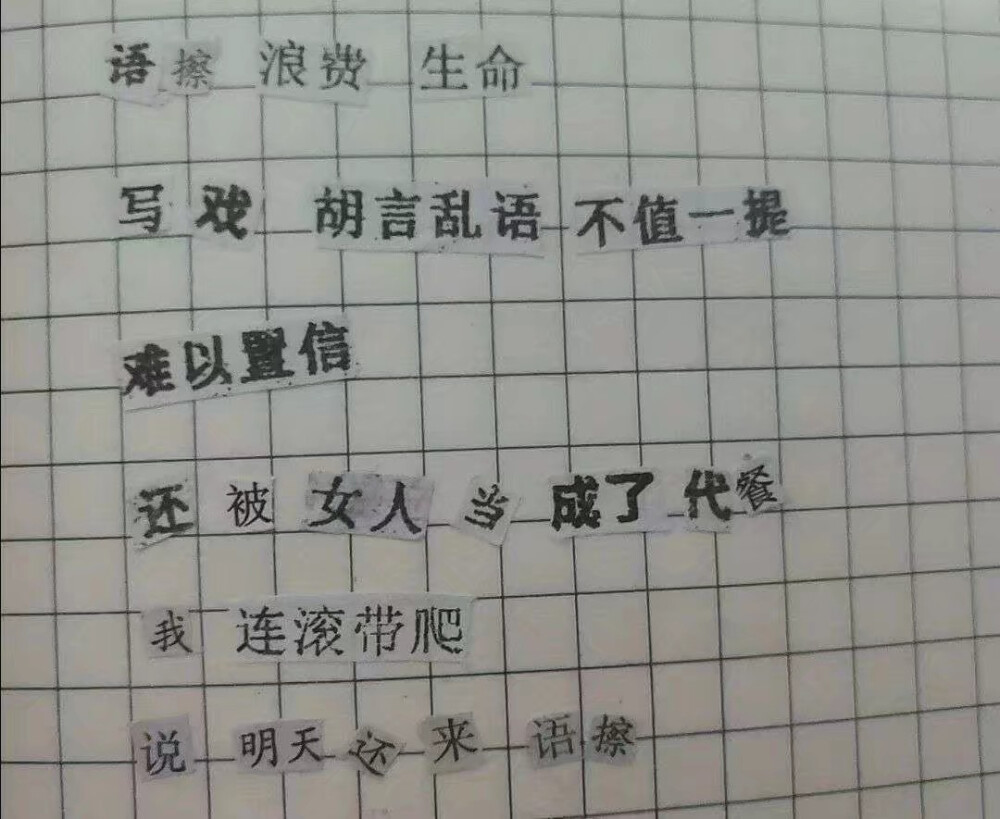 语擦 浪费 生命
写戏 胡言乱语 不值一提
难以置信
还被女人当成了代餐
我 连滚带爬
说 明天还来 语擦